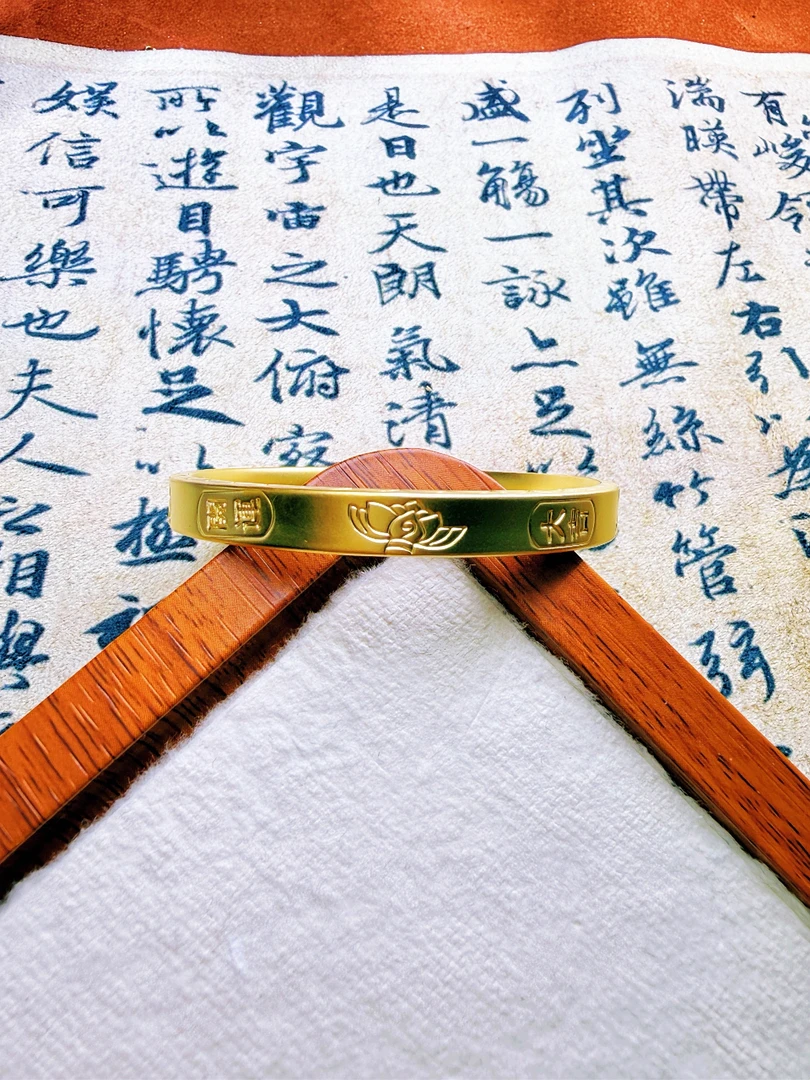 有峻
湍暎帶左右引以
列坐其次雖無絲竹管弦
盛一觴一詠亦足以
是日也天朗氣清
觀宇宙之大俯察
所以遊目騁懷足以極
娛信可樂也夫人之相與
開運
大吉